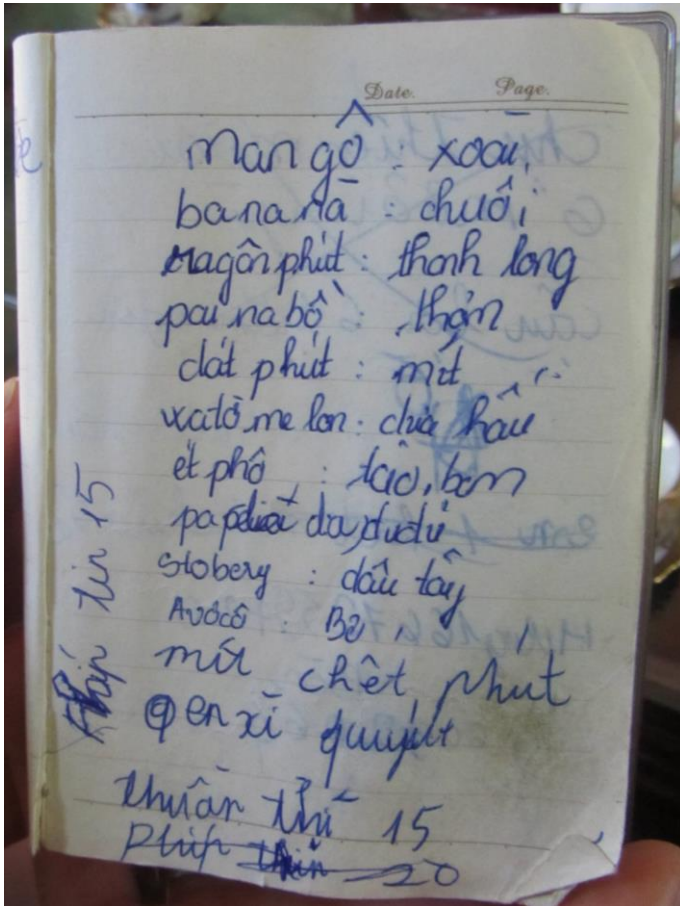 Date. Page.
mangô : xoài
bananà : chuối
ragôn phút : thanh long
pai nabồ : thơm
dát phút : mít
watờ me lon : dưa hấu
ét phô : táo, bom
đu đủ
Stobery : dâu tây
Avôcô : Bơ
mít chêt phut
qenxi quuýt
thuân thii 15
pháp 20
Pháp tin 15